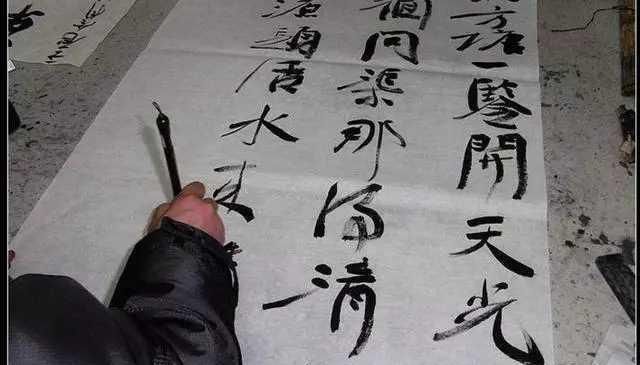 方塘一鑒開天光
徊問渠那得清
源頭活水来